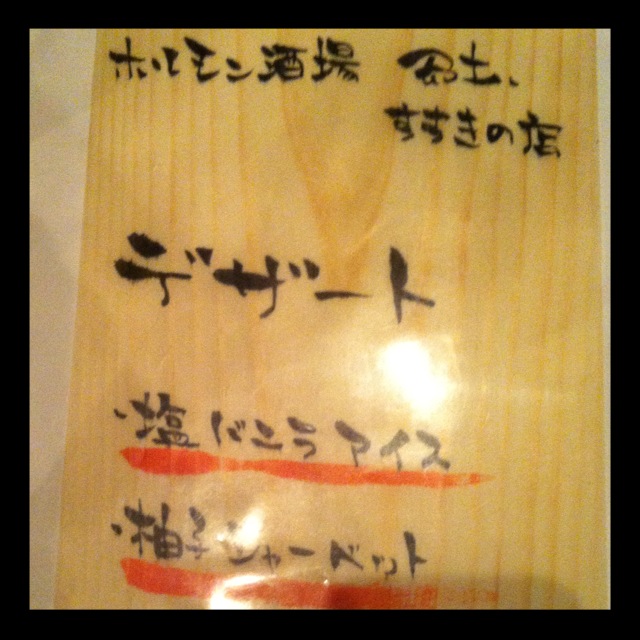 ホルモン酒場 風土、
すすきの店
デザート
塩ばにらアイス
柚子シャーベット